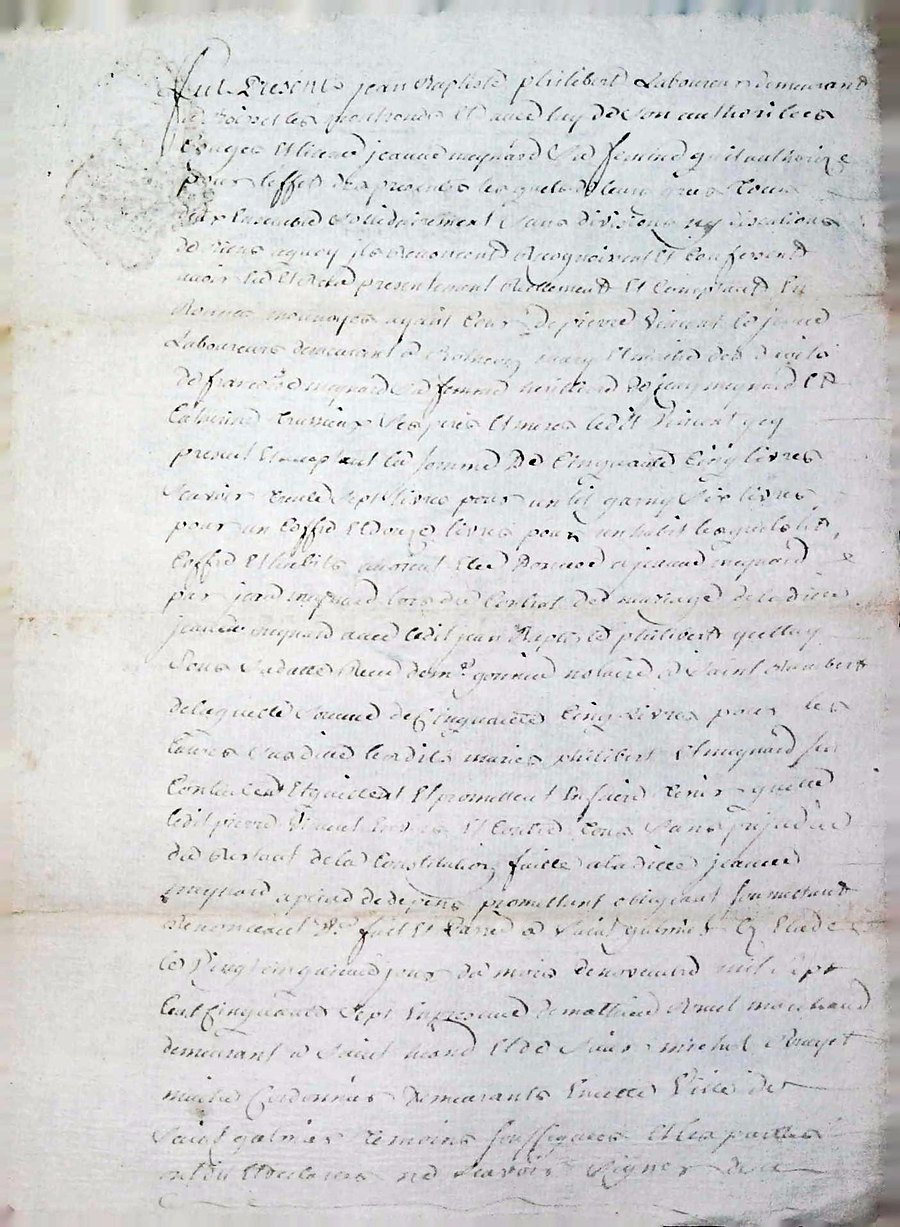 fut Présents jean Baptiste philibert Laboureur demeurant
a Boisset les montrond Et avec luy de Son authorité
Congés Et licence jeanne meynard Sa femme qu'il authorize
pour l'effet des presentes lesquels de leurs grés tous
deux Ensemble solidairement Sans division ny discution
de biens aquoy ils Renoncent Recognoissent Et Confessent
avoir Eu Et Receu presentement Reellement Et Comptant En
Bonnes monnoyes ayant Cour de pierre Vincent le jeune
Laboureur demeurant a mary Et maitre des droits
de franç.se meynard Sa femme heritiere de jean meynard Et
Catherine Ses pere Et mere ledit Vincent icy
present Et acceptant la Somme De Cinquante Cinq livres
Scavoir trente Sept livres pour un lit garny Six livres
pour un Coffre Et douze livres pour un habit lesquels lit
Coffre Et habits avoient Eté Donnés a jeanne meynard
par jean meynard lors du Contrat de mariage de ladite
jeanne meynard avec ledit jean Baptiste philibert
Sous Sa datte Receu de m.e notaire a Saint Rambert
de laquelle Somme de Cinquante Cinq livres pour les
Causes Susdites lesdits mariés philibert Et meynard Se
Contentent Et quittent Et promettent En faire tenir quitte
ledit pierre Vincent Envers Et Contre tous Sans prejudice
du Restant de la Constitution faitte a ladite jeanne
meynard a peine de depens promettant obligeant Soumettant
Renonceant &.a fait Et Passé a Saint galmier Etude
le Vingt cinquieme jour du mois de novembre mil Sept
Cent Cinquante Sept En presence de mathieu marchand
demeurant a Saint Et de Sieur michel
maitre Cordonnier demeurants En cette Ville de
Saint galmier temoins Soussignés Et les parties
ont dit Et declarés ne Scavoir Signer de ce